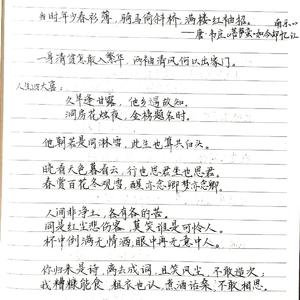 当时年少春衫薄，骑马倚斜桥，满楼红袖招。
——唐·韦庄《菩萨蛮·如今却忆江南乐》
一身清贫怎敢入繁华，两袖清风何以出家门。
人生四大喜：
久旱逢甘露，他乡遇故知。
洞房花烛夜，金榜题名时。
他朝若是同淋雪，此生也算共白头。
晓看天色暮看云，行也思君坐也思君。
春赏百花冬观雪，醒亦念卿梦亦念卿。
人间非净土，各有各的苦。
同是红尘悲伤客，莫笑谁是可怜人。
杯中倒满无情酒，眼中再无意中人。
你归来是诗，离去成词，且笑风尘，不敢造次；
我糟糠能食，粗衣也认，煮酒话桑，不敢相思。